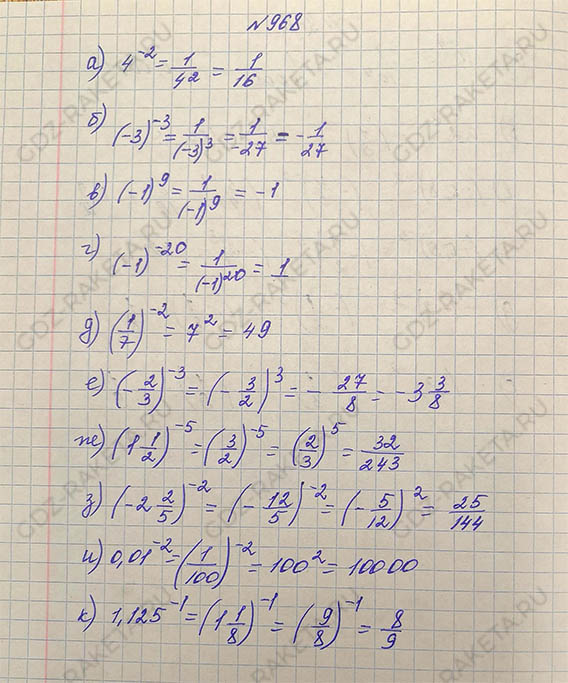 №968
а) 4^-2 = 1/42 = 1/16
б) (-3)^-3 = 1/(-3)^3 = 1/-27 = -1/27
в) (-1)^9 = 1/(-1)^9 = -1
г) (-1)^-20 = 1/(-1)^20 = 1
д) (1/7)^-2 = 7^2 = 49
е) (-2/3)^-3 = (-3/2)^3 = -27/8 = -3 3/8
ж) (1 1/2)^-5 = (3/2)^-5 = (2/3)^5 = 32/243
з) (-2 2/5)^-2 = (-12/5)^-2 = (-5/12)^2 = 25/144
и) 0,01^-2 = (1/100)^-2 = 100^2 = 10000
к) 1,125^-1 = (1 1/8)^-1 = (9/8)^-1 = 8/9
GDZ-RAKETA.RU